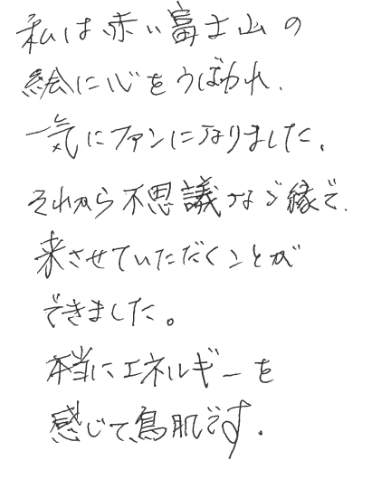 私は赤い富士山の
絵に心をうばわれ、
一気にファンになりました。
それから不思議なご縁で、
来させていただくことが
できました。
本当にエネルギーを
感じて、鳥肌です。